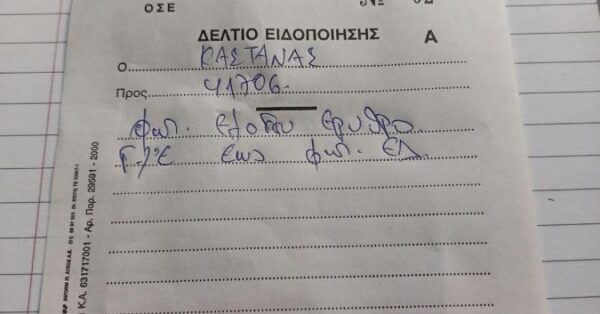 ΟΣΕ
ΔΕΛΤΙΟ ΕΙΔΟΠΟΙΗΣΗΣ Α
Ο ΚΑΣΤΑΝΑΣ
Προς 41706
φωτ. εισόδου ερυθρο
Γ/Ε εως φωτ. ΕΔ.
Κ.Α. 631717001 - Αρ. Παρ. 29591 - 2000